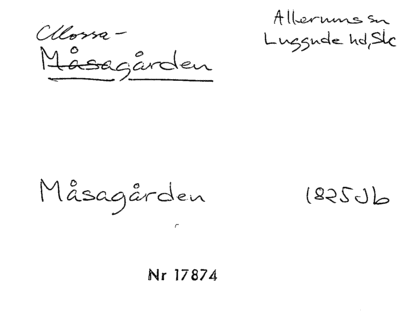 Allerums sn
Luggude hd, Sk
Mossa-
Måsagården
Måsagården 1825 Jb
Nr 17874